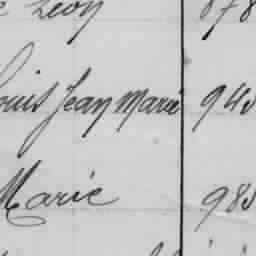 Léon 878
Louis Jean Marie 945
Marie 985